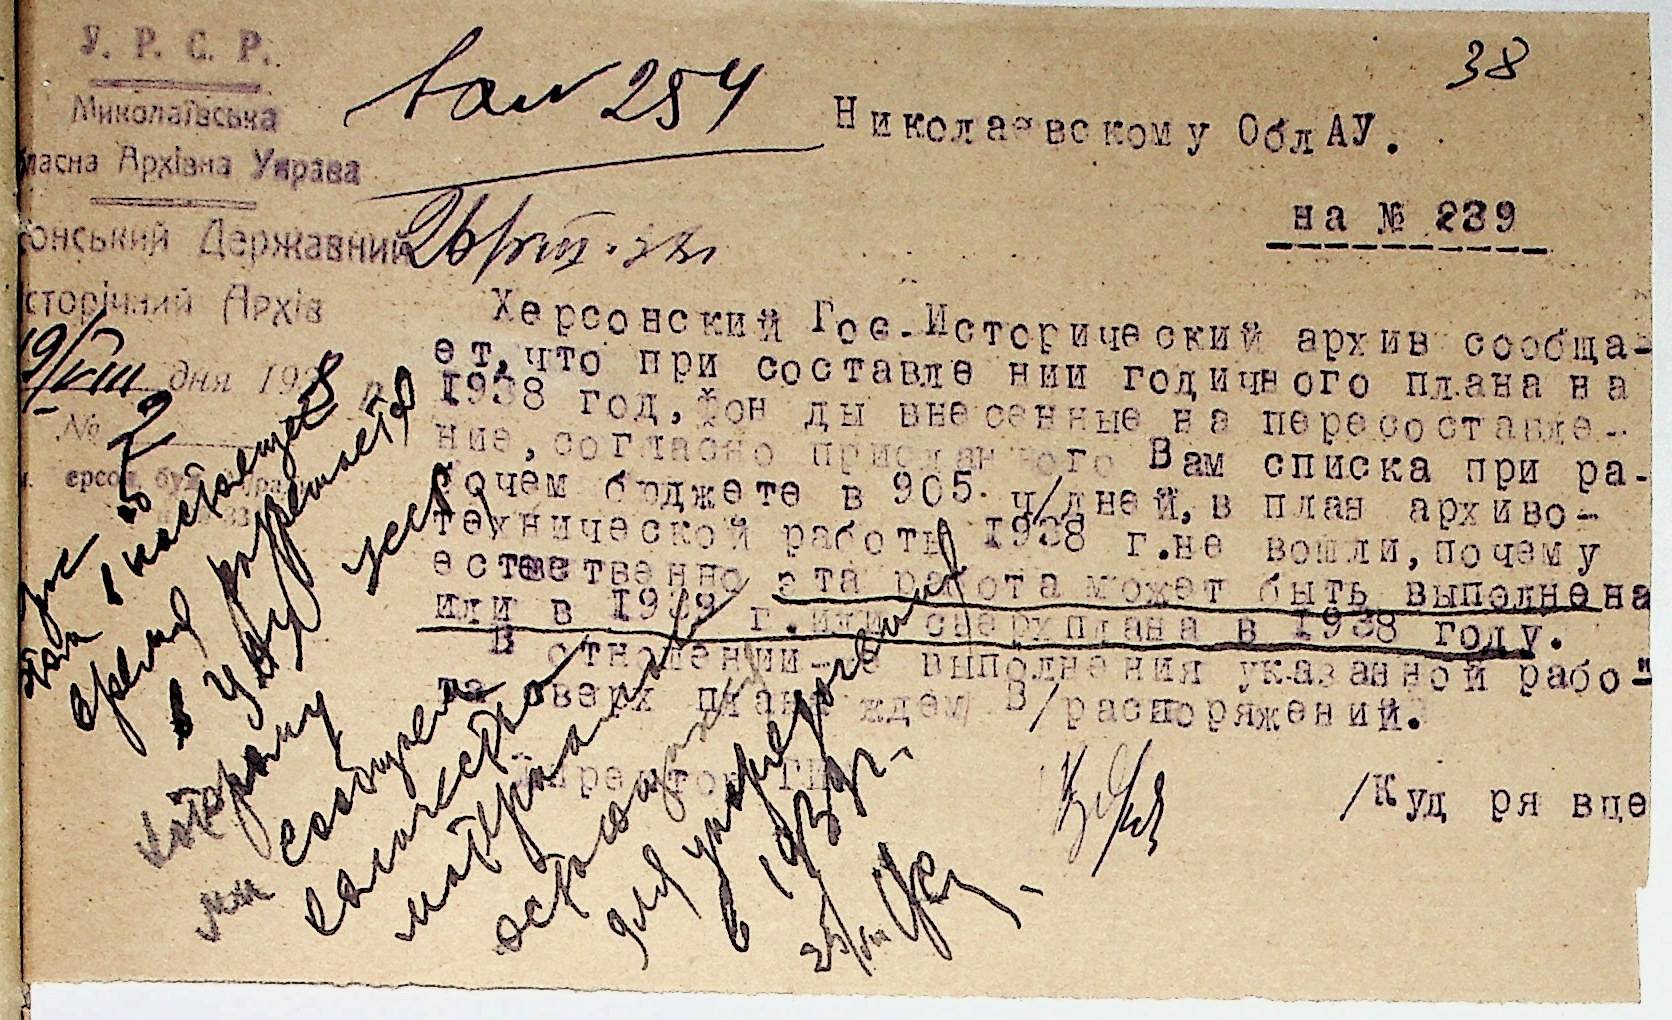 У. Р. С. Р.
Миколаївська
ласна Архівна Управа
онський Державний
сторічний Архів
19/VIII дня 1938 р.
№ 2
254
38
Николаевскому ОблАУ.
на № 239
Херсонский Гос.Исторический архив сообща-
ет, что при составле нии годичного плана на
1938 год, фон ды внесенные на пересоставле-
ние, согласно присланного Вам списка при ра-
бочем бюджете в 905 ч/дней, в план архиво-
технической работы 1938 г.не вошли, почему
естественно эта работа может быть выполнена
или в 1939 г.или сверхплана в 1938 году.
В отношении-е выполнения указанной рабо-
та сверх плана ждем В/распоряжений.
Директор
/Куд ря вце
настоящее
время
в УАУ
которому
мы сообщаем
количество
материалов
для
в 1939 г.